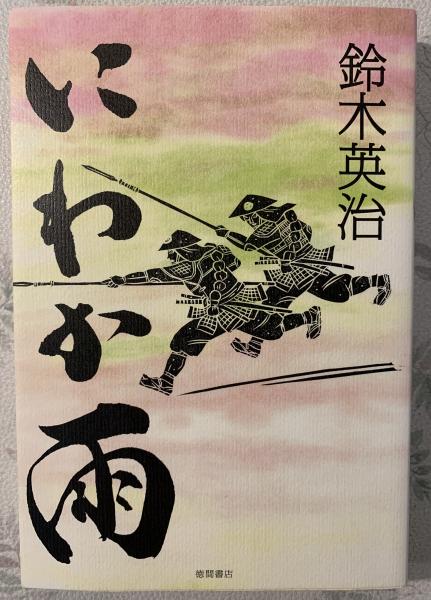 鈴木英治
にわか雨
徳間書店